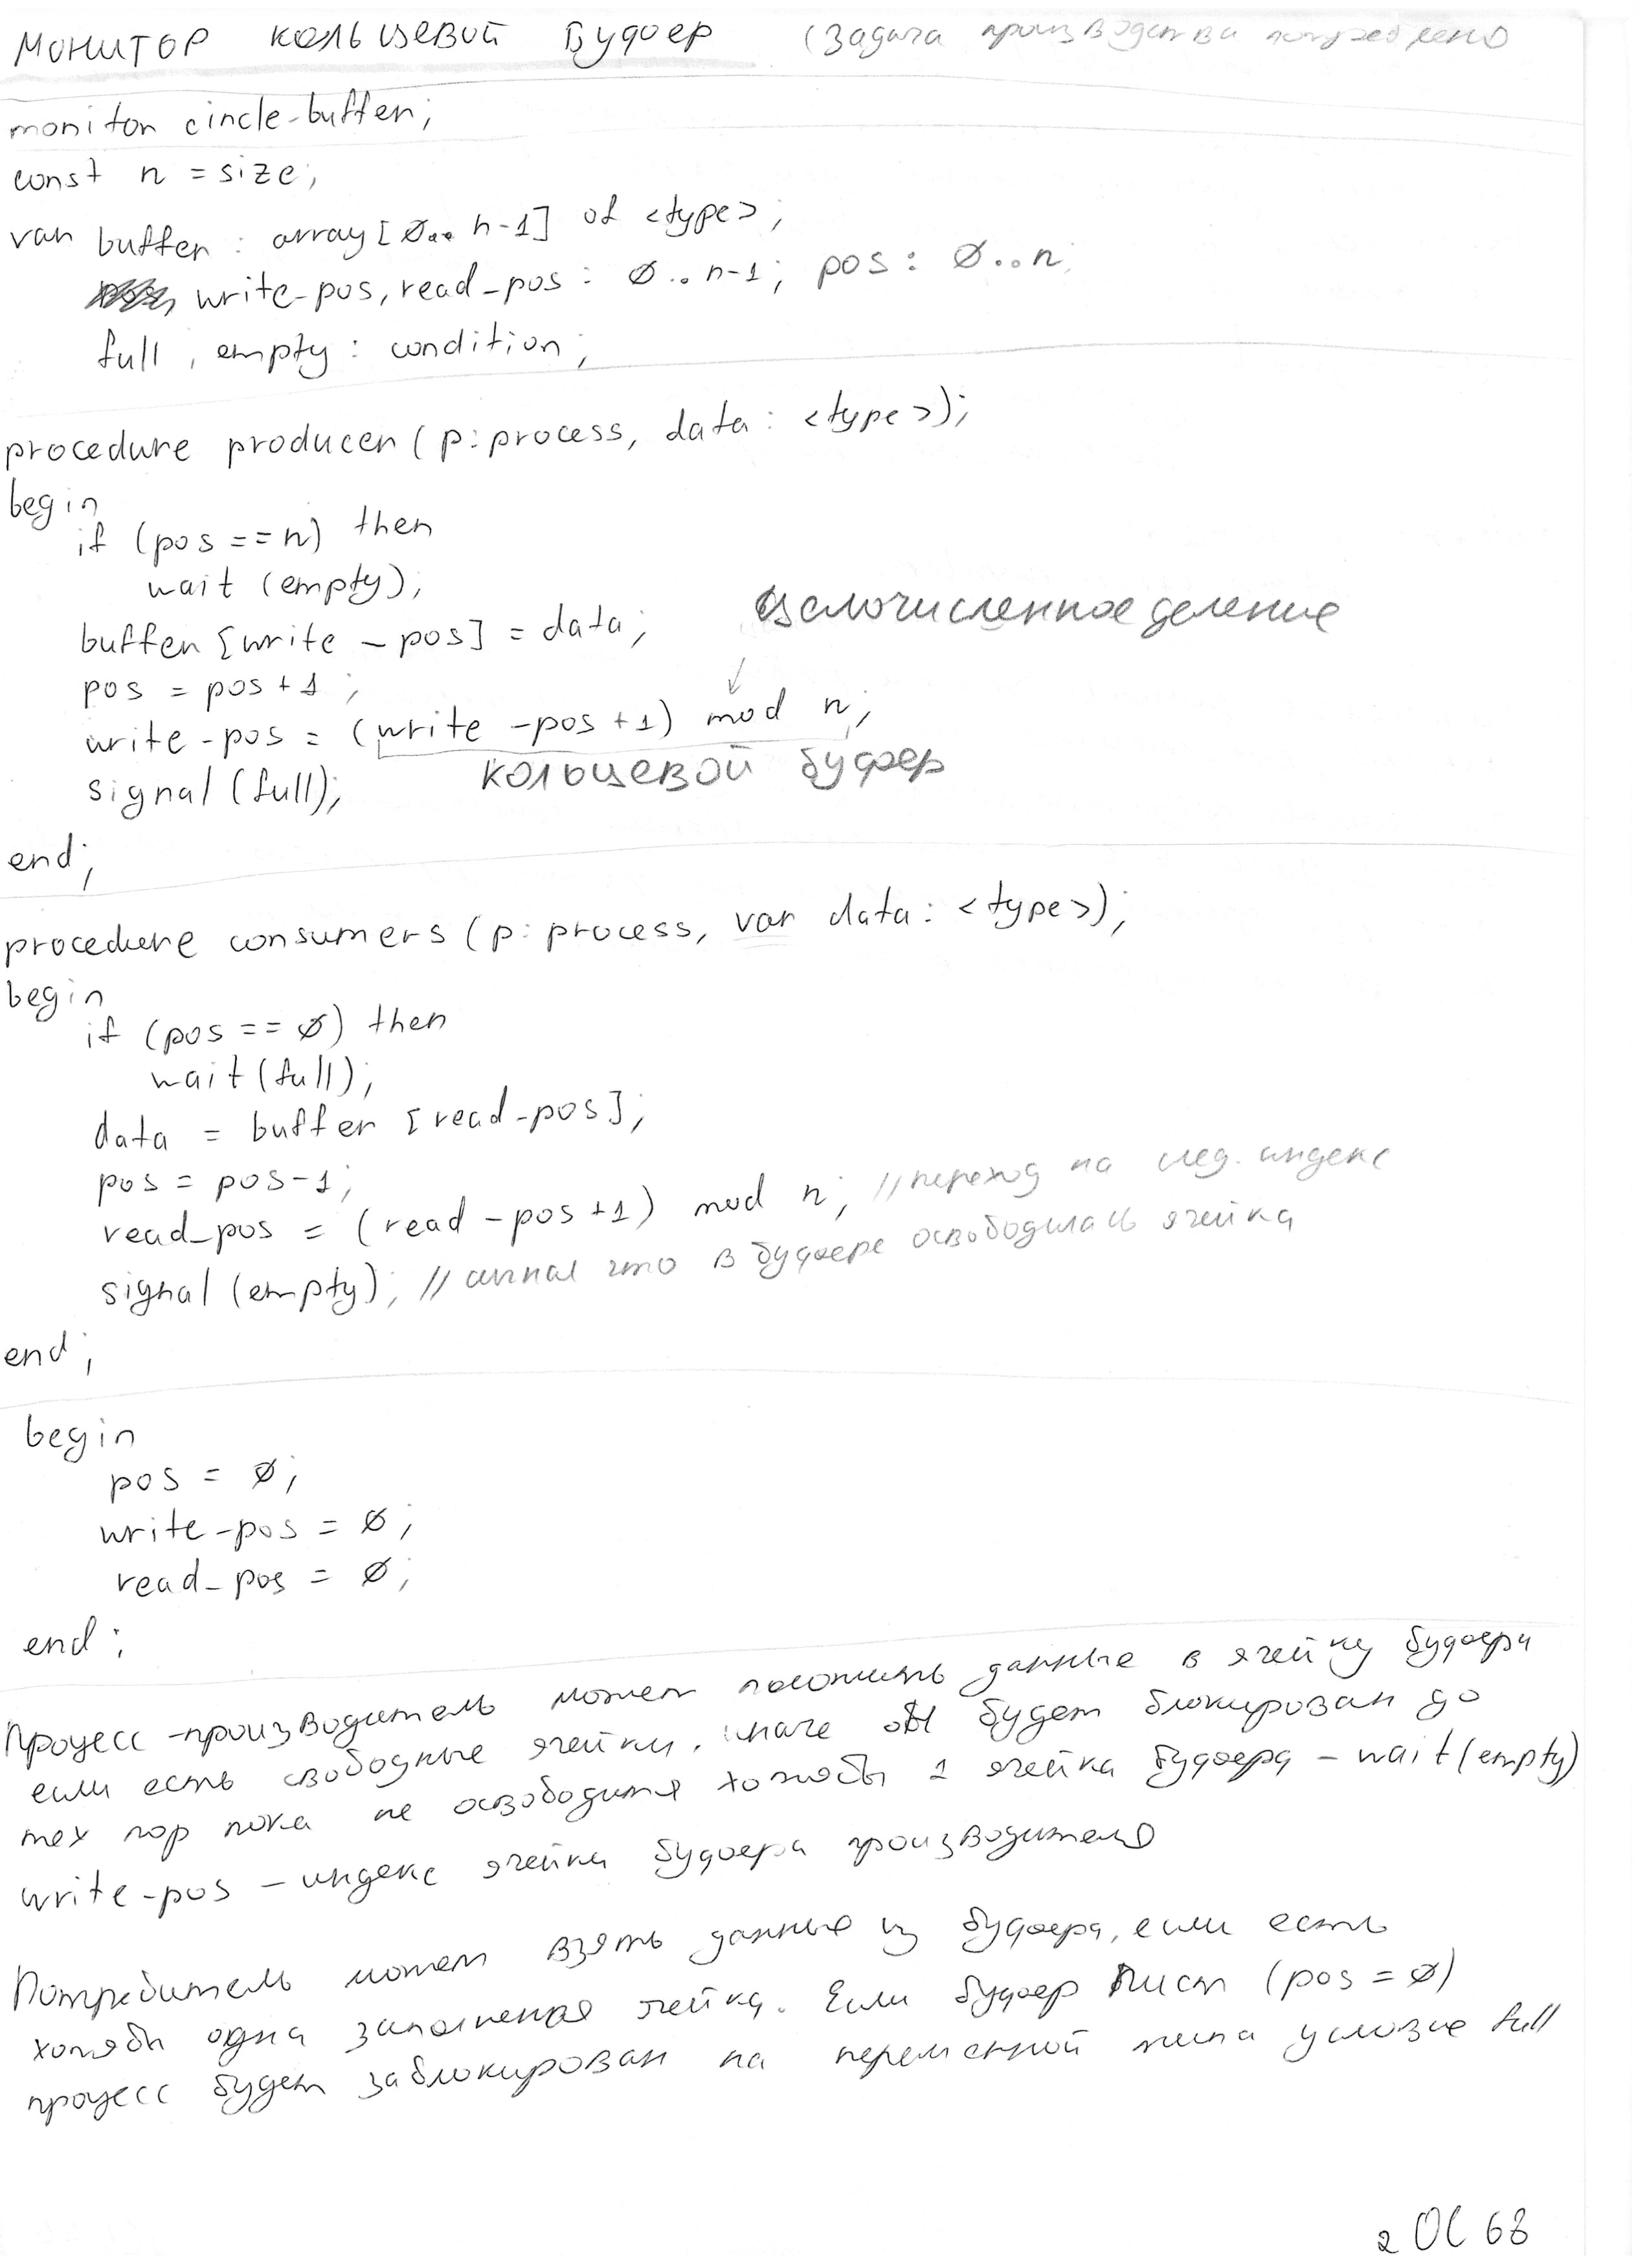 Монитор кольцевой буфер (Задача производства потребления
monitor circle-buffer;
const n = size;
var buffer : array [0.. n-1] of <type>;
write-pos, read_pos : 0.. n-1; pos : 0..n;
full, empty : condition;
procedure producer (p: process, data : <type>);
begin
if (pos == n) then
wait (empty);
целочисленное деление
buffer [write - pos] = data;
pos = pos + 1 ;
write - pos = (write - pos + 1) mod n;
кольцевой буфер
signal (full);
end;
procedure consumers (p: process, var data : <type>);
begin
if (pos == 0) then
wait (full);
data = buffer [read-pos];
pos = pos-1;
read_pos = (read - pos +1) mod n; // переход на след. индекс
signal (empty); // сигнал что в буфере освободилась ячейка
end;
begin
pos = 0;
write-pos = 0;
read_pos = 0;
end;
Процесс-производитель может положить данные в ячейку буфера
если есть свободные ячейки, иначе он будет блокирован до
тех пор пока не освободится хотябы 1 ячейка буфера - wait (empty)
write-pos - индекс ячейки буфера производителя
Потребитель может взять данные из буфера, если есть
хотябы одна заполненная ячейка. Если буфер пуст (pos = 0)
процесс будет заблокирован на переменной типа условие full
2 ОС 68